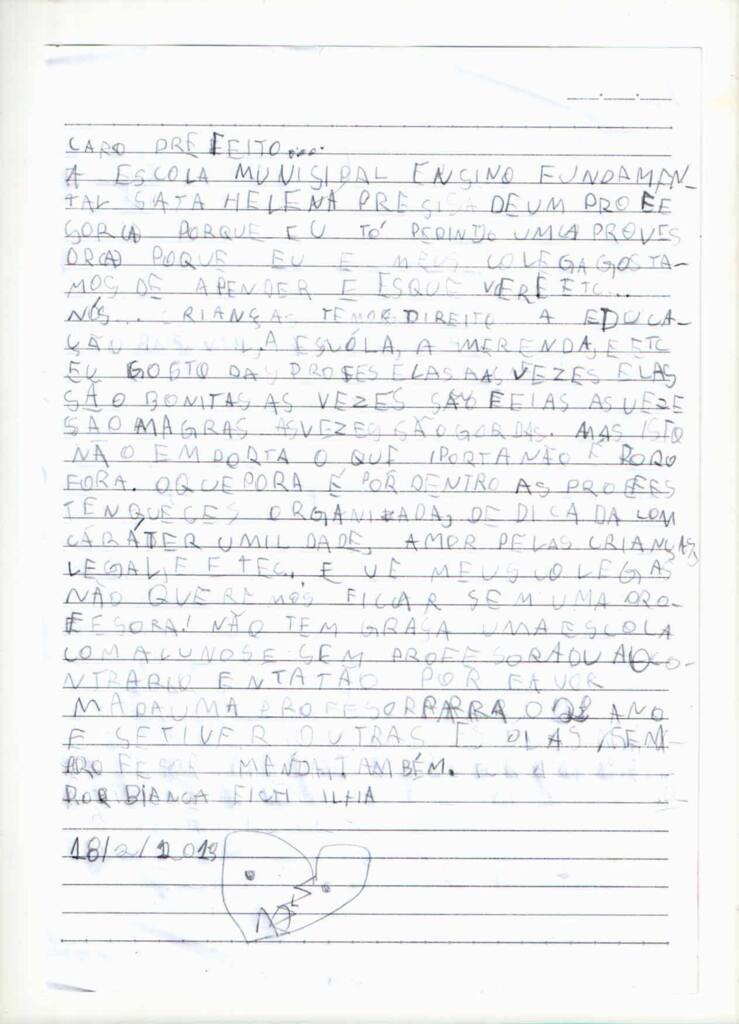 CARO PREFEITO....
A ESCOLA MUNISIPAL ENSINO FUNDAMEN-
TAL SATA HELENA PRESISA DE UM PROFE
SOR(A) PORQUE EU TÔ PEDINDO UM(A PROVES
OR(A) POQUE EU E MEUS COLEGA GOSTA-
MOS DE APENDER E ESQUEVER E ETC...
NÓS... CRIANÇAS TEMOR DIREITO A EDUCA-
ÇÃO A ESCÓLA, A MERENDA, E ETC
EU GOSTO DAS PROFES ELAS AS VEZES ELAS
SÃO BONITAS AS VEZES SÃO FEIAS AS VEZE
SÃO MAGRAS AS VEZES SÃO GORDAS. MAS ISTO
NÃO EMPORTA O QUE IPORTA NÃO É PORO
FORA. O QUE PORA É POR DENTRO AS PROFES
TEN QUE CES ORGANIZADA, DE DICADA COM
CARÁTER UMILDADE, AMOR PELAS CRIANÇAS,
LEGAL, E ETEC. E UE MEUS COLEGAS
NÃO QUEREMOS FICAR SEM UMA PRO-
FESORA! NÃO TEM GRASA UMA ESCOLA
COM ALUNOS E SEM PROFESORA OU AO CO-
NTRARIO ENTATÃO POR FAVOR
MADA UMA PROFESOR PARRA O ANO
E SE TIVER OUTRAS SEM
PROFESOR MANDA TAMBÉM.
POR BIANCA FICH ILHA
18/2/2013